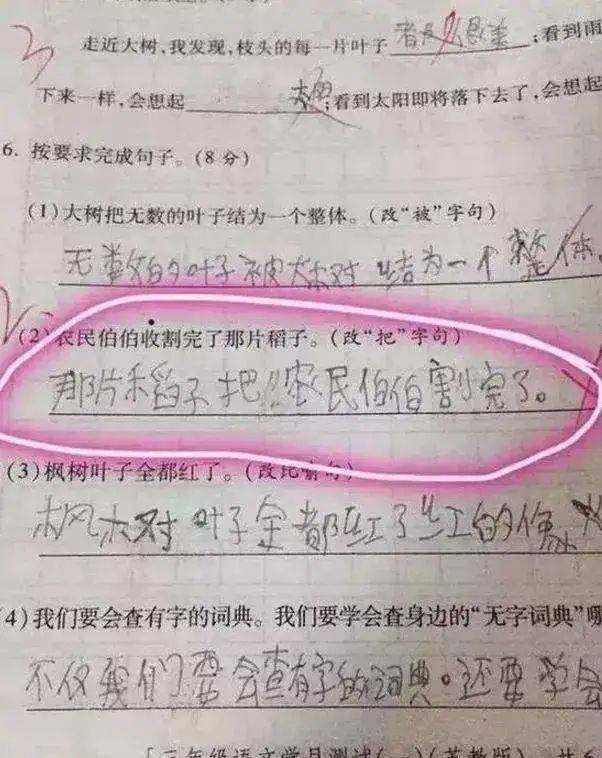 走近大树,我发现,枝头的每一片叶子 ;看到雨
下来一样,会想起 ;看到太阳即将落下去了,会想起
6. 按要求完成句子。(8分)
(1)大树把无数的叶子结为一个整体。(改“被”字句)
无数的叶子被大树结为一个整体。
(2)农民伯伯收割完了那片稻子。(改“把”字句)
那片稻子把农民伯伯割完了。
(3)枫树叶子全都红了。(改比喻句)
枫树叶子全都红了红的像火
4)我们要会查有字的词典。我们要学会查身边的“无字词典”
不仅我们要会查有字的词典。还要学会
[三年级语文学月测试(一)(苏教版) 共6